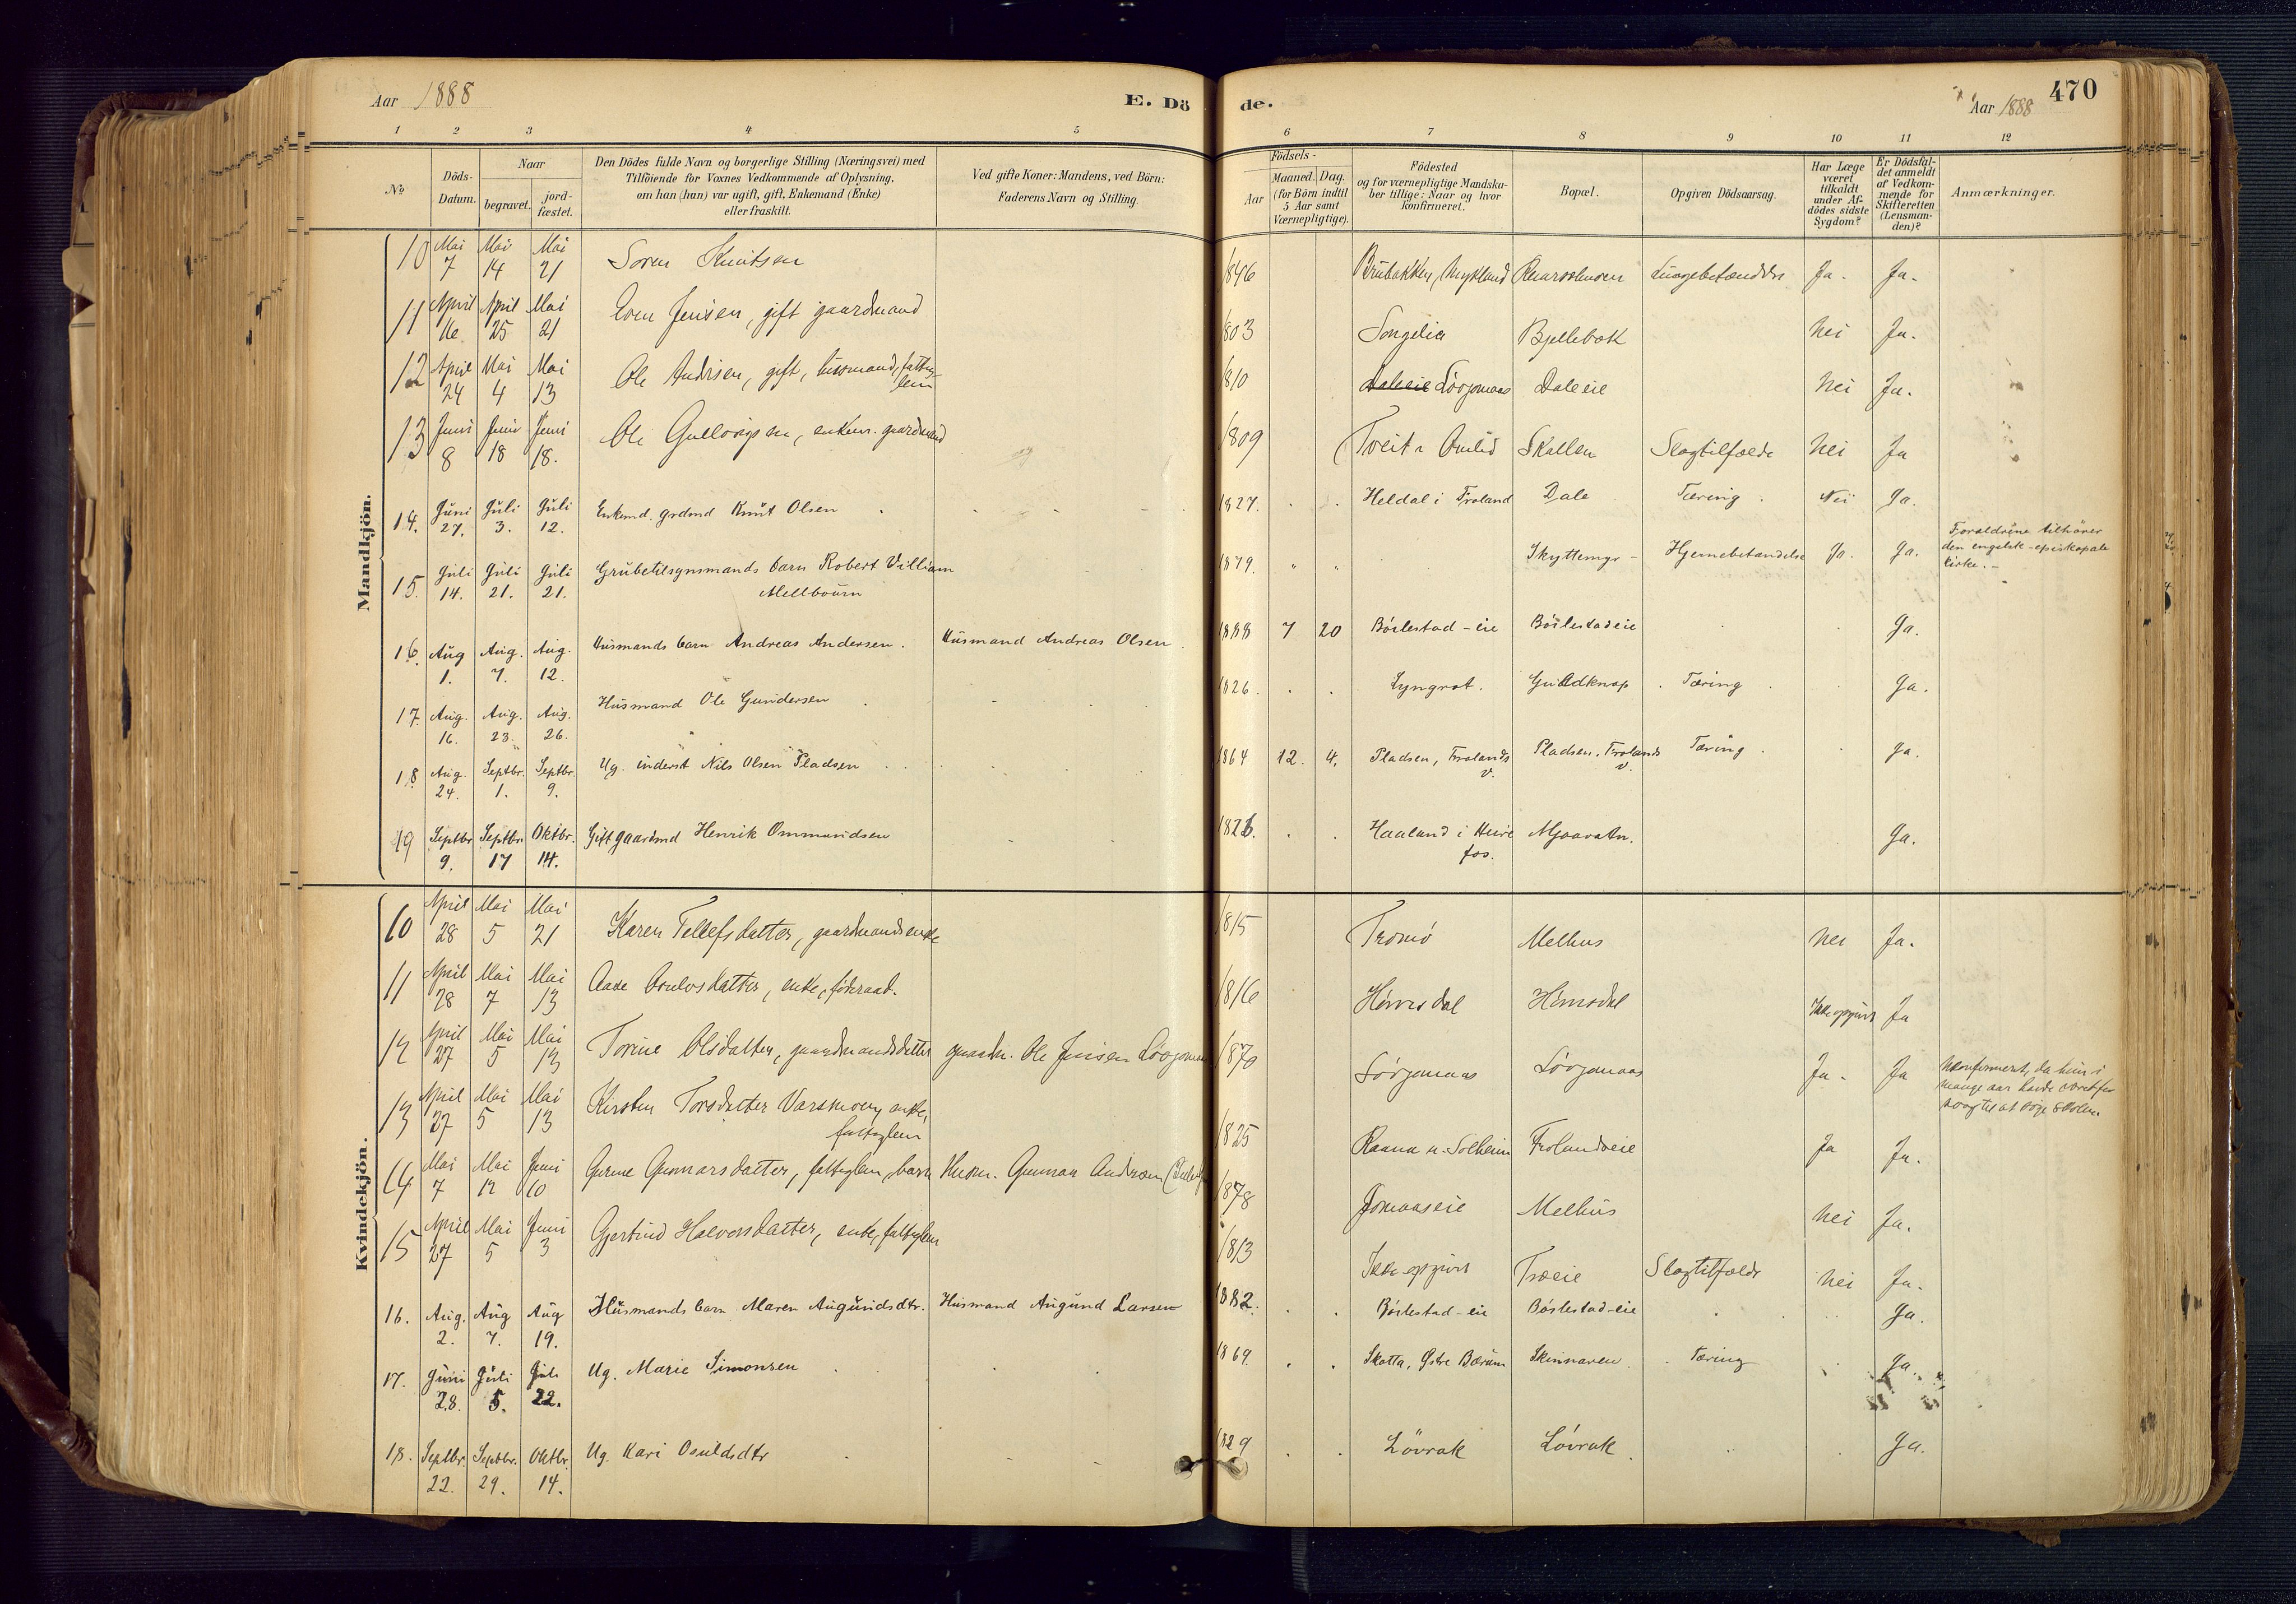 Aar 1888
E. Dö
de.
Aar 1888
470
1 2 3 4 5 6 7 8 9 10 11 12
No
Döds-Datum.
Naar
begravet. jord-fæstet.
Den Dödes fulde Navn og borgerlige Stilling (Næringsvei) med
Tilföiende for Voxnes Vedkommende af Oplysning,
om han (hun) var ugift, gift, Enkemand (Enke)
eller fraskilt.
Ved gifte Koner: Mandens, ved Börn:
Faderens Navn og Stilling.
Födsels-
Aar
Maaned. Dag.
(for Börn indtil
5 Aar samt
Værnepligtige).
Födested
og for værnepligtige Mandska-
ber tillige: Naar og hvor
konfirmeret.
Bopæl.
Opgiven Dödsaarsag.
Har Læge
været
tilkaldt
under Af-
dödes sidste
Sygdom?
Er Dödsfal-
det anmeldt
af Vedkom-
mende for
Skifteretten
(Lensman-
den)?
Anmærkninger.
Mandkjön.
10 Mai 7 Mai 14 Mai 21 Soren Knutsen 1846 Brubakken, Mykland Lungebetændelse Ja. Ja.
11 April 16 April 25 Mai 21 Even Jensen, gift gaardmand 1803 Songelia Bjellebæk Nei Ja.
12 April 24 Mai 4 Mai 13 Ole Andersen, gift, husmand, fattig-
lem 1810 Daleeie Nei Ja.
13 Juni 8 Juni 18 Juni 18. Ole, enkem. gaardmand 1809 Tveit i Omlid Skallen Slagtilfælde Nei Ja
14. Juni 27. Juli 3. Juli 12. Enkmd. grdmd Knut Olsen 1827. Heldal i Froland Dale Tæring Nei Ja.
15. Juli 14. Juli 21. Juli 21. Grubetilsynsmands barn Robert William
Mellbourn 1879. Skyttemyr Hjernebetændelse Ja. Ja. Forældrene tilhörer
den engelsk-episkopale
kirke.
16. Aug 1. Aug. 7. Aug. 12. Husmands barn Andreas Andersen. Husmand Andreas Olsen 1888 7 20 Böilestad-eie Böilestadeie Ja.
17. Aug. 16. Aug. 23. Aug. 26. Husmand Ole Gundersen 1826. Lyngrot. Guldknap Tæring Ja.
18 Aug. 24. Septbr. 1. Septbr. 9. Ug. inderst Nils Olsen Pladsen 1864 12. 4. Pladsen, Frolands
v. Pladsen, Frolands
v. Tæring Ja.
19 Septbr 9. Septbr. 17 Oktbr. 14. Gift gaardmd Henrik Ommundsen 1826. Haaland i Heire
fos. Mjaavatn. Ja.
Kvindekjön.
10 April 28 Mai 5 Mai 21 Karen Tellefsdatter, gaardmandsenke 1815 Tromö Melhus Nei Ja.
11 April 28 Mai 7 Mai 13 Aase, enke, föderaad. 1816 Ikke opgivet Ja
12 April 27 Mai 5 Mai 13 Torine Olsdatter, gaardmandsdatter gaardm. Ole Jensen 1870 Ja. Ja Ukonfirmert, da hun i
mange aar havde været for
svag til at söge skolen.
13 April 27 Mai 5 Mai 13 Kirsten Torsdatter, enke,
fattiglem 1825 Frolandseie Ja Ja.
14 Mai 7 Mai 12 Juni 10 Gunnarsdatter, fattiglem, barn Husm. Gunnar Andersen 1878 Jomaaseie Melhus Nei Ja.
15 April 27 Mai 5 Juni 3 Gjertrud Halvorsdatter, enke, fattiglem 1813 Ikke opgivet Træeie Slagtilfælde Nei Ja.
16. Aug. 2. Aug 7. Aug 19. Husmands barn Maren Augundsdtr. Husmand Augund Larsen 1882. Böilestad-eie Böilestad-eie Ja.
17. Juni 28. Juli 5. Juli 22. Ug. Marie Simonsen 1869. Skotta, Östre Bærum Skinnaren. Tæring Ja.
18. Septbr. 22. Septbr. 29. Oktbr. 14. Ug. Kari Osuldsdtr 1829 Lövrak Lövrak Ja.